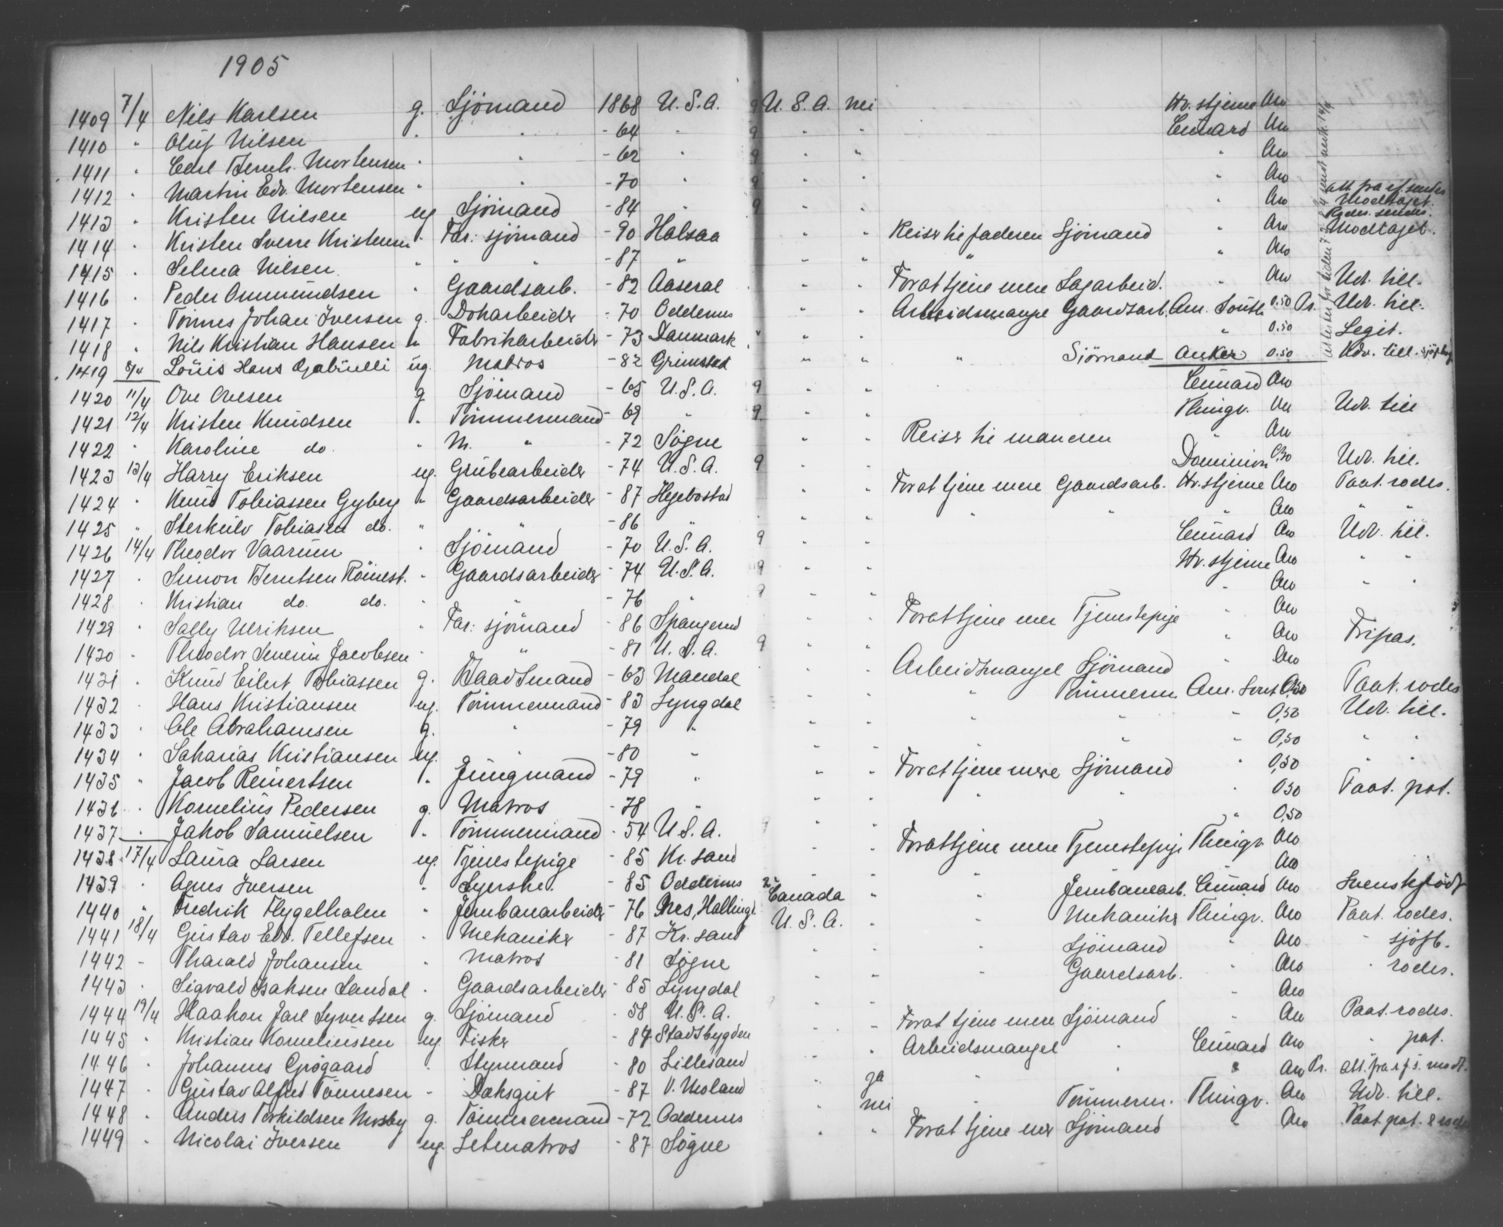 1905
1409 7/4 Nils Karlsen g. Sjömand 1868 U.S.A. 9 U.S.A. nei Hv. stjerne Aw
1410 " Oluf Nilsen " " - 64 " 9 " " Cunard Aw
1411 " Carl Bernh. Mortensen " " - 62 " 9 " " " Aw
1412 " Martin Edv. Mortensen " " - 70 " 9 " " Aw
1413 " Kristen Nilsen ug Sjömand - 84 " 9 " " " Aw Modtaget.
1414 " Kristen Sverre Kristensen " Far: sjömand - 90 Halsaa " " Reiser til faderen Sjömand " Aw Modtaget.
1415 " Selma Nilsen " " " - 87 " " " " " Aw
1416 " Peder Ommundsen " Gaardsarb. - 82 Aaseral " " For at tjene mere Sagarbeid. " Aw Udv. till.
1417 " Tönnes Johan Iversen g. Dokarbeider - 70 Oddernes " " Arbeidsmangel Gaardsarb. Am. South 0.50 Pr. Udv. till.
1418 " Nils Kristian Hansen " Fabrikarbeider - 73 Danmark " " " " " 0.50 Legit.
1419 8/4 Louis Hans Gabrielli ug. Matros - 82 Grimstad " " " Sjömand Anker 0.50 Udv. till.
1420 11/4 Ove Ovesen g Sjömand - 65 U.S.A. 9 " " Cunard Aw
1421 12/4 Kristen Knudsen " Tömmermand - 69 " 9 " " Thingv. Aw Udv. till
1422 " Karoline do. " M. " - 72 Søgne " " Reiser til manden Aw
1423 13/4 Harry Eriksen ug. Grubearbeider - 74 U.S.A. 9 " " Dominion 0.30 Udv. till.
1424 " Knud Tobiassen Gyberg " Gaardsarbeider - 87 Hegebostad " " For at tjene mere Gaardsarb. Hv. stjerne Aw Paat. rodes.
1425 " Sterkulv Tobiasen do. " " - 86 " " " " " Aw "
1426 14/4 Theodor Vaarum " Sjömand - 70 U.S.A. 9 " " Cunard Aw Udv. till.
1427 " Simon Berntsen Röinest. " Gaardsarbeider - 74 U.S.A. 9 " " Hv. stjerne Aw " "
1428 " Kristian do. do. " " - 76 " 9 " " " Aw " "
1429 " Sally Ulriksen " Far: sjömand - 86 Spangereid " " For at tjene mer Tjenestepige " Aw
1430 " Theodor Severin Jacobsen " " - 81 U.S.A. 9 " " " Aw Fripas.
1431 " Knud Eilert Tobiassen g. Baadsmand - 63 Mandal " " Arbeidsmangel Sjömand Aw
1432 " Hans Kristiansen ug. Tömmermand - 83 Lyngdal " " " Tömmerm Am. South 0.50 Paat. rodes
1433 " Ole Abrahamsen g. " - 79 " " " " " " 0,50 Udv. till.
1434 " Sakarias Kristiansen ug. " - 80 " " " " " " 0,50 " "
1435 " Jacob Reinertsen " Jungmand - 79 " " " For at tjene mere Sjömand " 0,50
1436 " Kornelius Pedersen g. Matros - 78 " " " " " " 0.50 Paat. pol.
1437 " Jakob Samuelsen " Tömmermand - 54 U.S.A. 9 " " " 0.50
1438 17/4 Laura Larsen ug. Tjenestepige - 85 Kr. sand " " For at tjene mere Tjenestepige Thingv. Aw
1439 " Agnes Iversen " Syerske - 85 Oddernes " " " " Aw
1440 " Fredrik Flygelholm " Jernbanarbeider - 76 Nes, Hallingd. Canada " " Jernbanearb. Cunard Aw Svenskfödt
1441 18/4 Gustav Edv. Tellefsen " Mekaniker - 87 Kr. sand U.S.A. " " Mekaniker Thingv. Aw Paat. rodes.
1442 - Tharald Johansen " Matros - 81 Søgne " " " Sjömand " Aw " sjöfb.
1443 " Sigvald Isaksen Landal " Gaardsarbeider - 85 Lyngdal " " " Gaardsarb. " Aw " rodes.
1444 19/4 Haakon Jarl Syvertsen g. Sjömand - 58 U.S.A. " " " Aw
1445 " Kristian Korneliussen ug Fisker - 84 Stadsbygden " " For at tjene mere Sjömand " Aw Paat. rodes.
1446 " Johannes Grögaard " Styrmand - 80 Lillesand " " Arbeidsmangel " Cunard Aw " pol.
1447 " Gustav Alfred Tönnesen " Daksgut - 87 V. Moland " ja " " " Aw Pr. att. fra s.f.s. modt.
1448 " Anders Terkildsen Mosby g. Tömmermand - 72 Oddernes " nei " Tömmerm. Thingv. Aw Udv. till.
1449 " Nicolai Iversen ug. Letmatros - 87 Søgne " " For at tjene mer Sjömand " Aw Paat. pol. & rodes